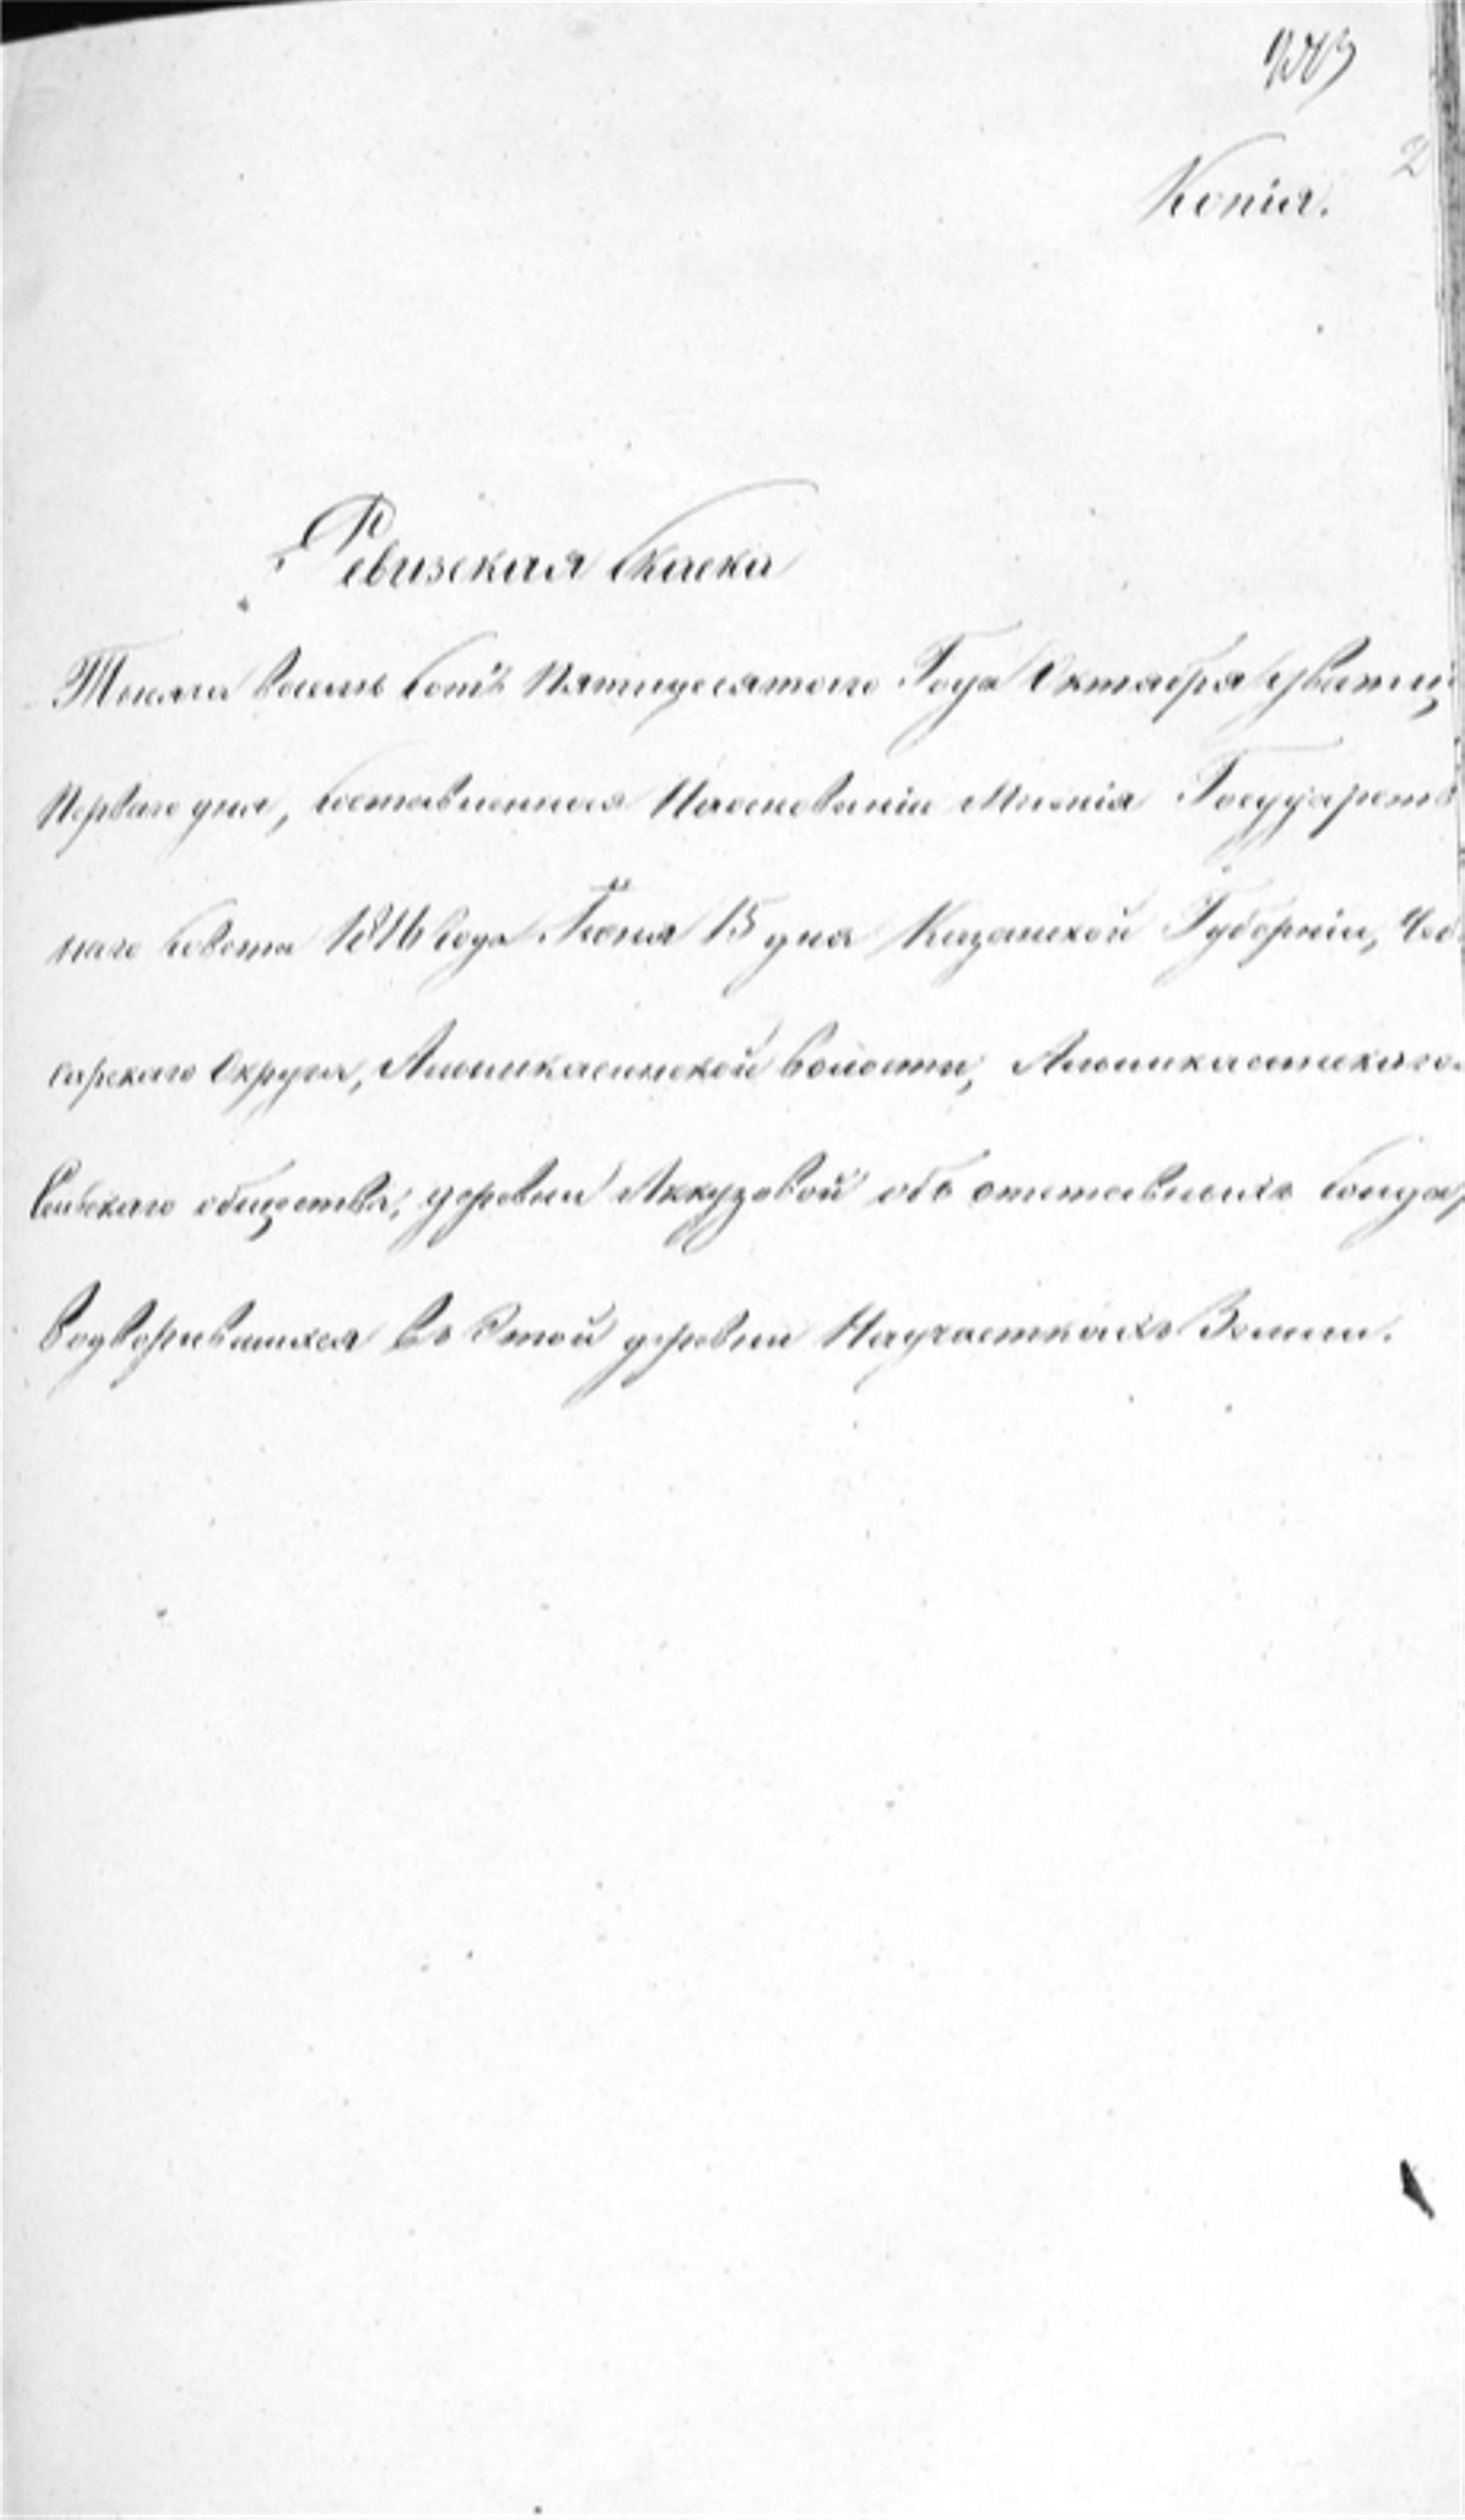 Копія.
2
Ревизская Сказка
Тысяча восемь сотъ Пятидесятого Года Октября дватц
Перваго дня, составленная Наосновании Мнѣнія Государств
наго Совѣта 1816 года Іюня 15 дня Казанской Губерніи, Чеб
сарскаго Округа, Алымкасинской волости, Алымкасинскаго
Сельскаго общества, деревни Аккузовой объ отставныхъ Солда
водворившихся въ этой деревни Научасткахъ Земли.